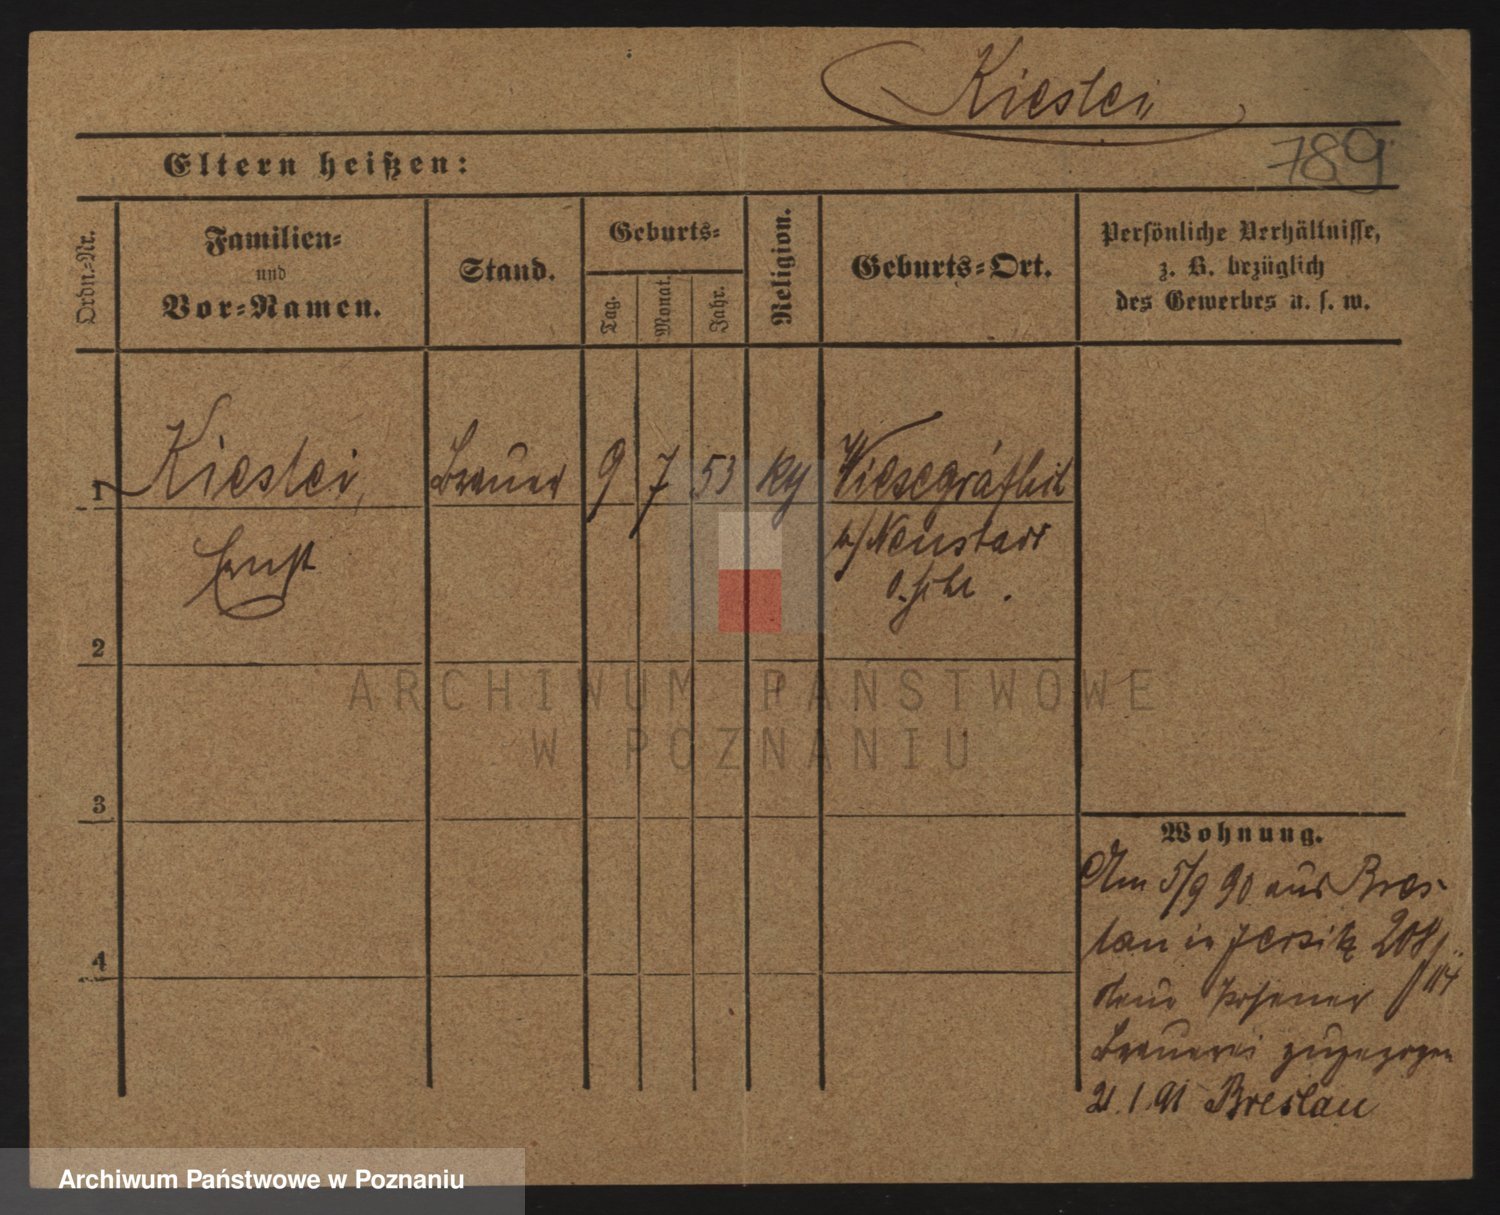 Kieslei
789
Eltern heißen:
Ordn.-Nr.
Familien-
und
Vor-Namen.
Stand.
Geburts-
Tag.
Monat.
Jahr.
Religion.
Geburts-Ort.
Persönliche Verhältnisse,
z. B. bezüglich
des Gewerbes u. s. w.
1 Kieslei, Brauer 9 7 53 Wiesegräflich
Ernst
b/Neustadt
2
ARCHIWUM PAŃSTWOWE
W POZNANIU
3
4
Wohnung.
Am 5/9 90 aus Bres-
lau in Jersitz
Posener
Brauerei zugezogen
21.1.91 Breslau
Archiwum Państwowe w Poznaniu